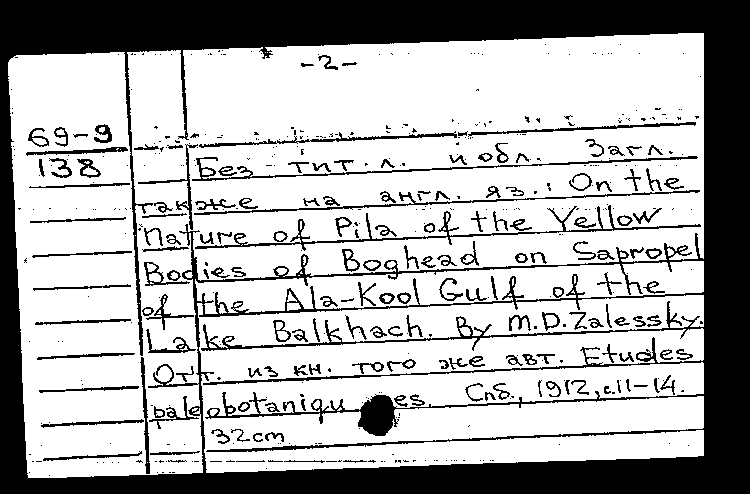 -2-
69-9
138
Без тит. л. и обл. Загл.
также на англ. яз.: On the
Nature of Pila of the Yellow
Bodies of Boghead on Sapropel
of the Ala-Kool Gulf of the
Lake Balkhach. By M.D.Zalessky.
Отт. из кн. того же авт. Etudes
paleobotaniques. Спб., 1912, с.11-14.
32cm